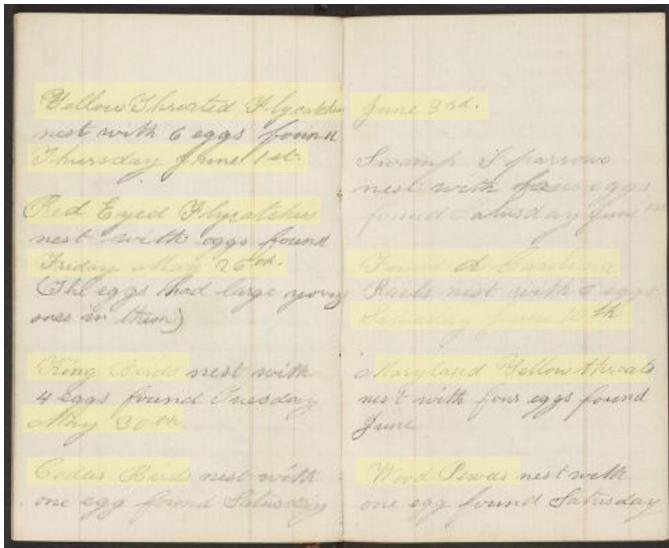 Yellow Throated Flycatcher
nest with 6 eggs found
Thursday June 1st.
Red Eyed Flycatcher
nest with eggs found
Friday May 26th.
(The eggs had large young
ones in them)
King Birds nest with
4 eggs found Tuesday
May 30th
Cedar Bird nest with
one egg found Saturday
June 3rd.
Swamp Sparrows
nest with four eggs
found Saturday June
Found a Carolina
Rails nest with 6 eggs
Saturday June 10th
Maryland Yellow throats
nest with four eggs found
June
Wood Pewees nest with
one egg found Saturday